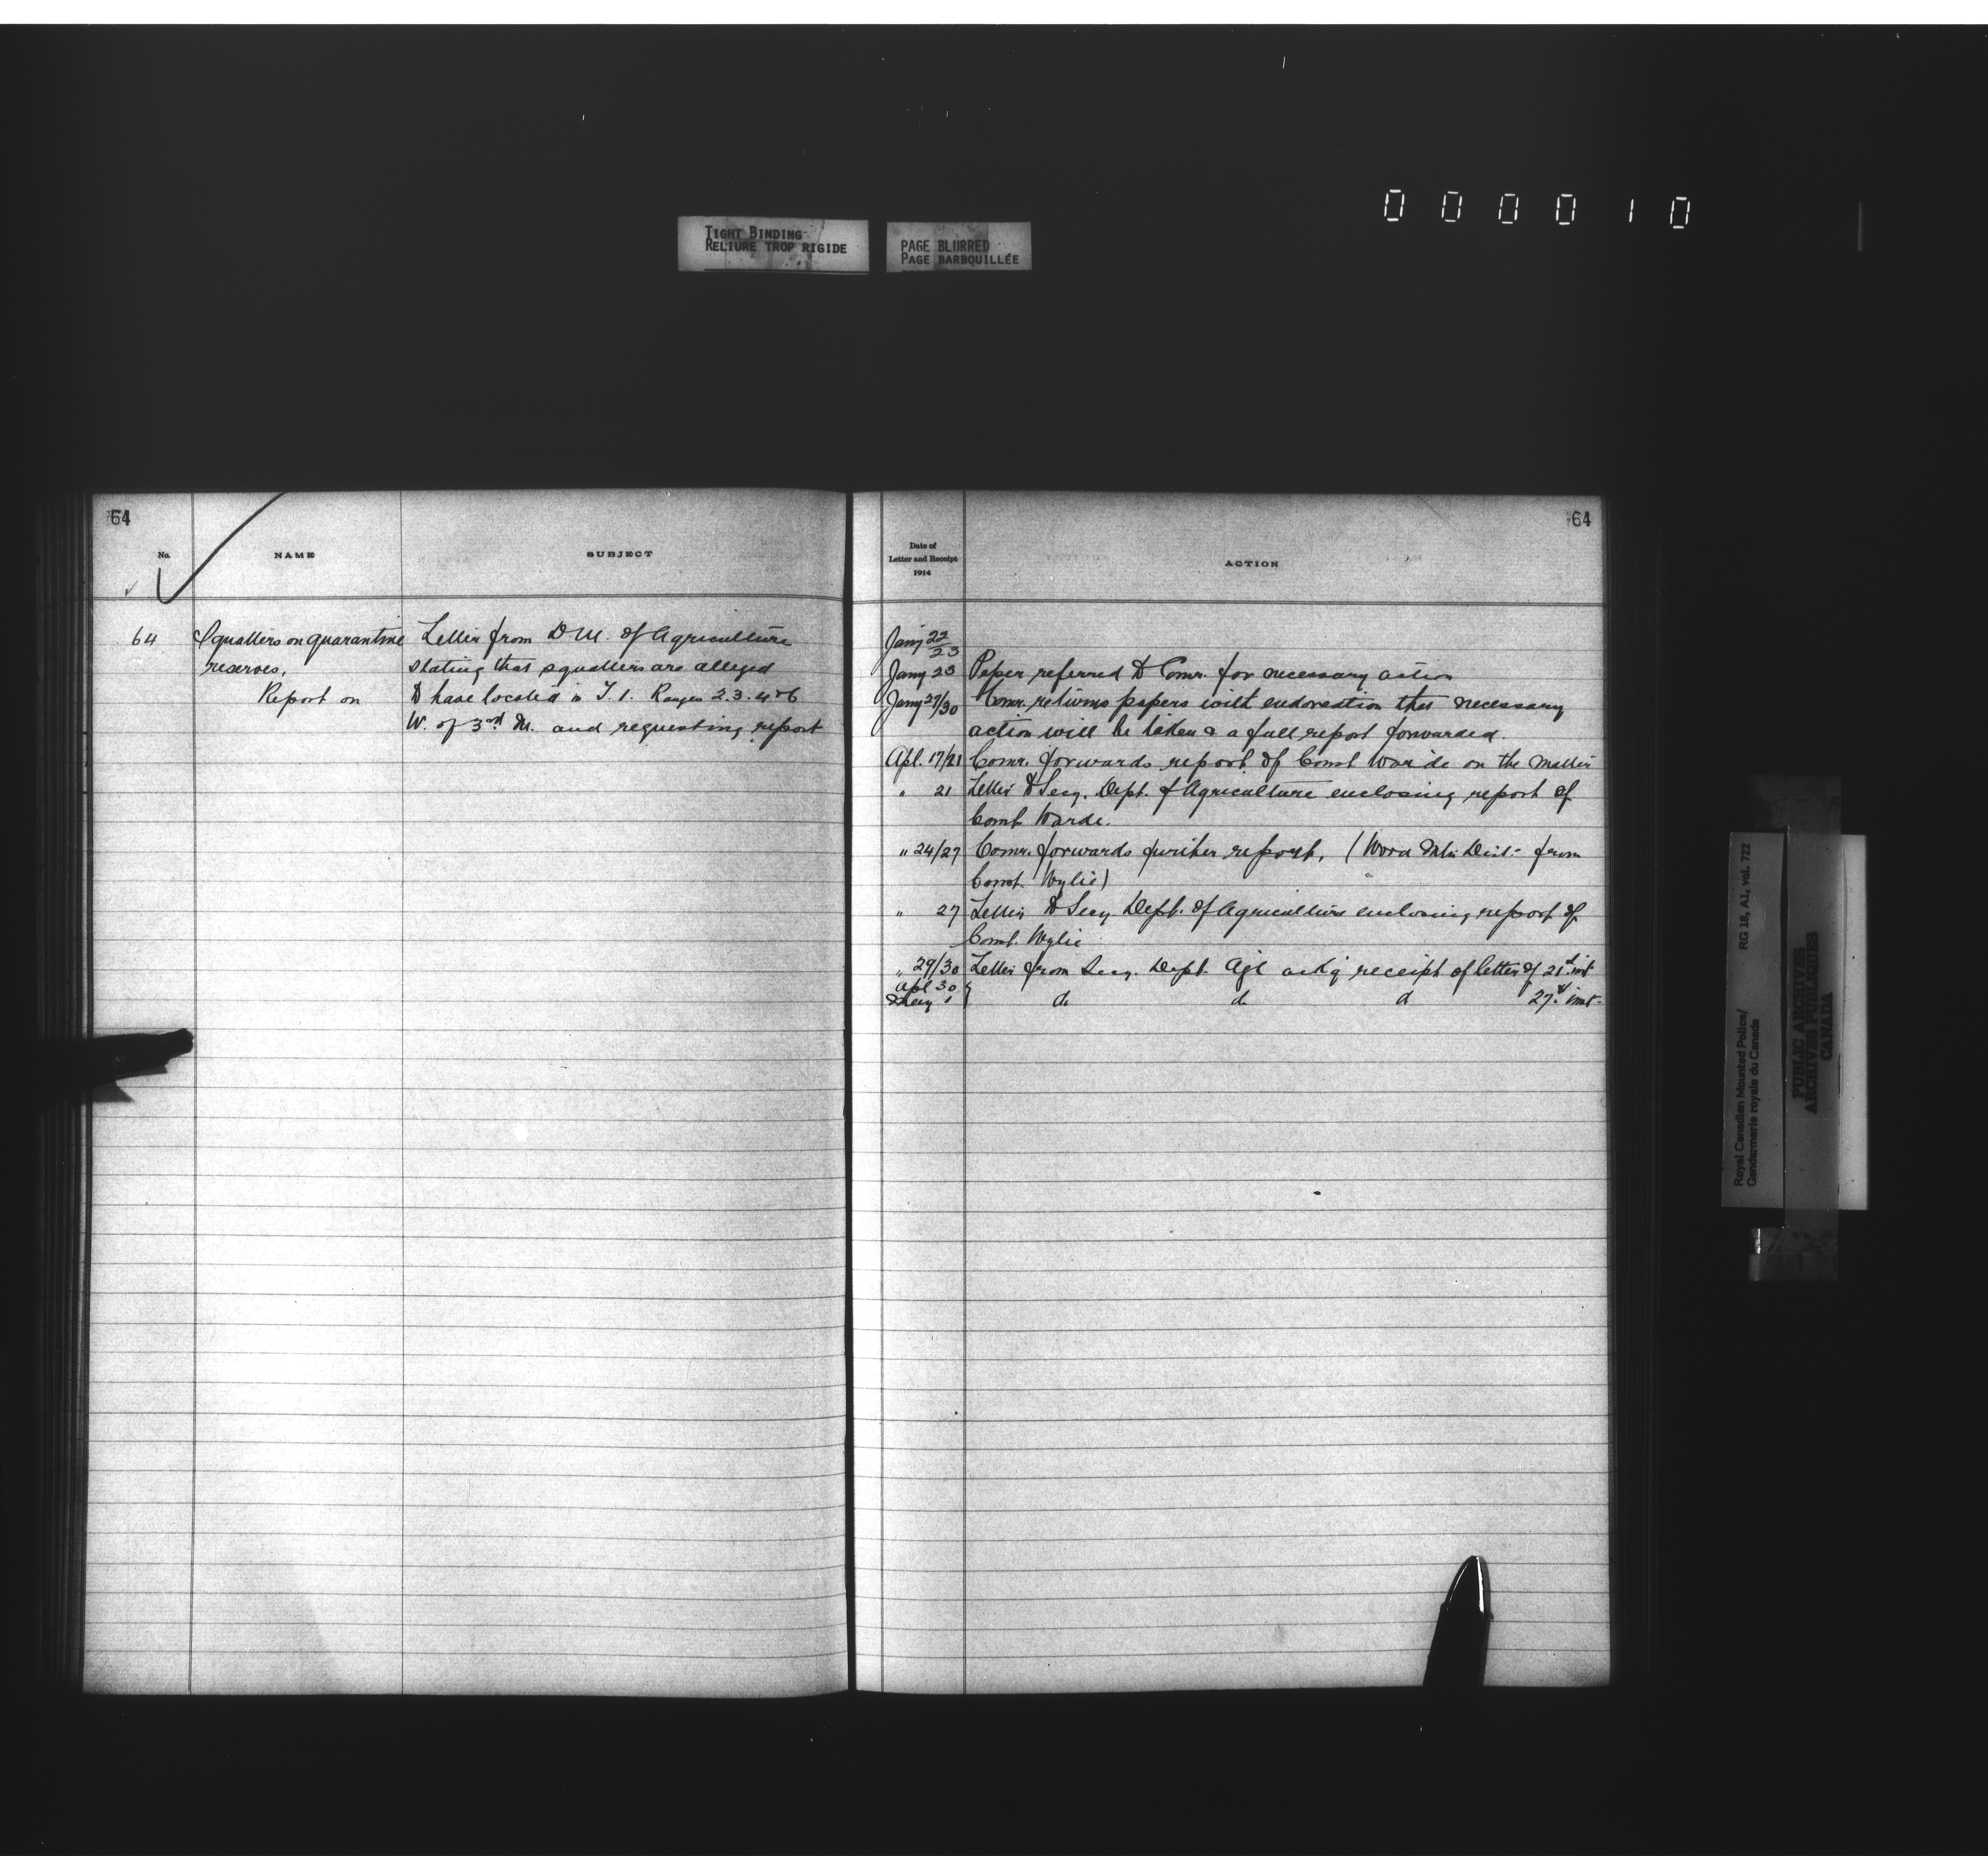 000010
TIGHT BINDING
RELIURE TROP RIGIDE
PAGE BLURRED
PAGE BARBOUILLÉE
64
No.
NAME
SUBJECT
64 Squatters on quarantine
reserves,
Report on
Letter from D M. of Agriculture
stating that squatters are alleged
to have located in T. 1. Ranges 2.3.4 & 6
W. of 3rd M. and requesting report
64
Date of
Letter and Receipt
1914
ACTION
Jany 22/23
Jany 23 Paper referred to Comr. for necessary action
Jany 27/30 Comr. returns papers with endorsation that necessary
action will be taken & a full report forwarded.
Apl. 17/21 Comr. forwards report of Const Warde on the matter
" 21 Letter to Secy. Dept. of Agriculture enclosing report of
Const Warde.
" 24/27 Comr. forwards further report, (Wood Mtn Dist. from
Const. Wylie)
" 27 Letter to Secy Dept. of Agriculture enclosing report of
Const. Wylie
" 29/30 Letter from Secy. Dept. Agl ackg receipt of letter of 21st inst
Apl 30
May 1 do do do 27th inst.
Royal Canadian Mounted Police/
Gendarmerie royale du Canada
RG 18, A1, vol. 722
PUBLIC ARCHIVES
ARCHIVES PUBLIQUES
CANADA